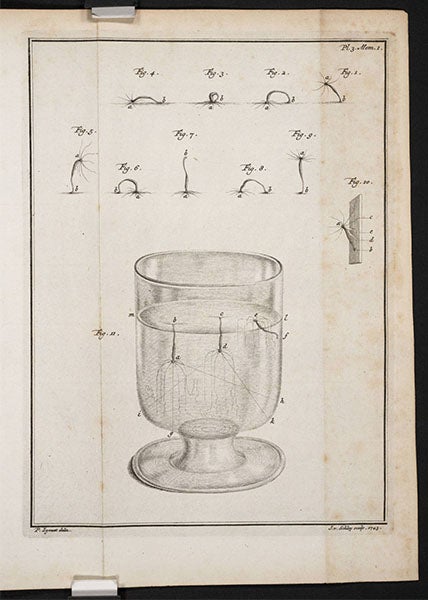 Pl. 3. Mem. 1.
Fig. 4. Fig. 3. Fig. 2. Fig. 1.
a b a b a b a b
Fig. 5. Fig. 7. Fig. 9.
a b
Fig. 6. Fig. 8.
b a b a a b a b
Fig. 10.
a c e d b
Fig. 11.
m b c e l
f
a d
i h
g k
P. Lyonet delin. J. v. Schley sculp. 1743.